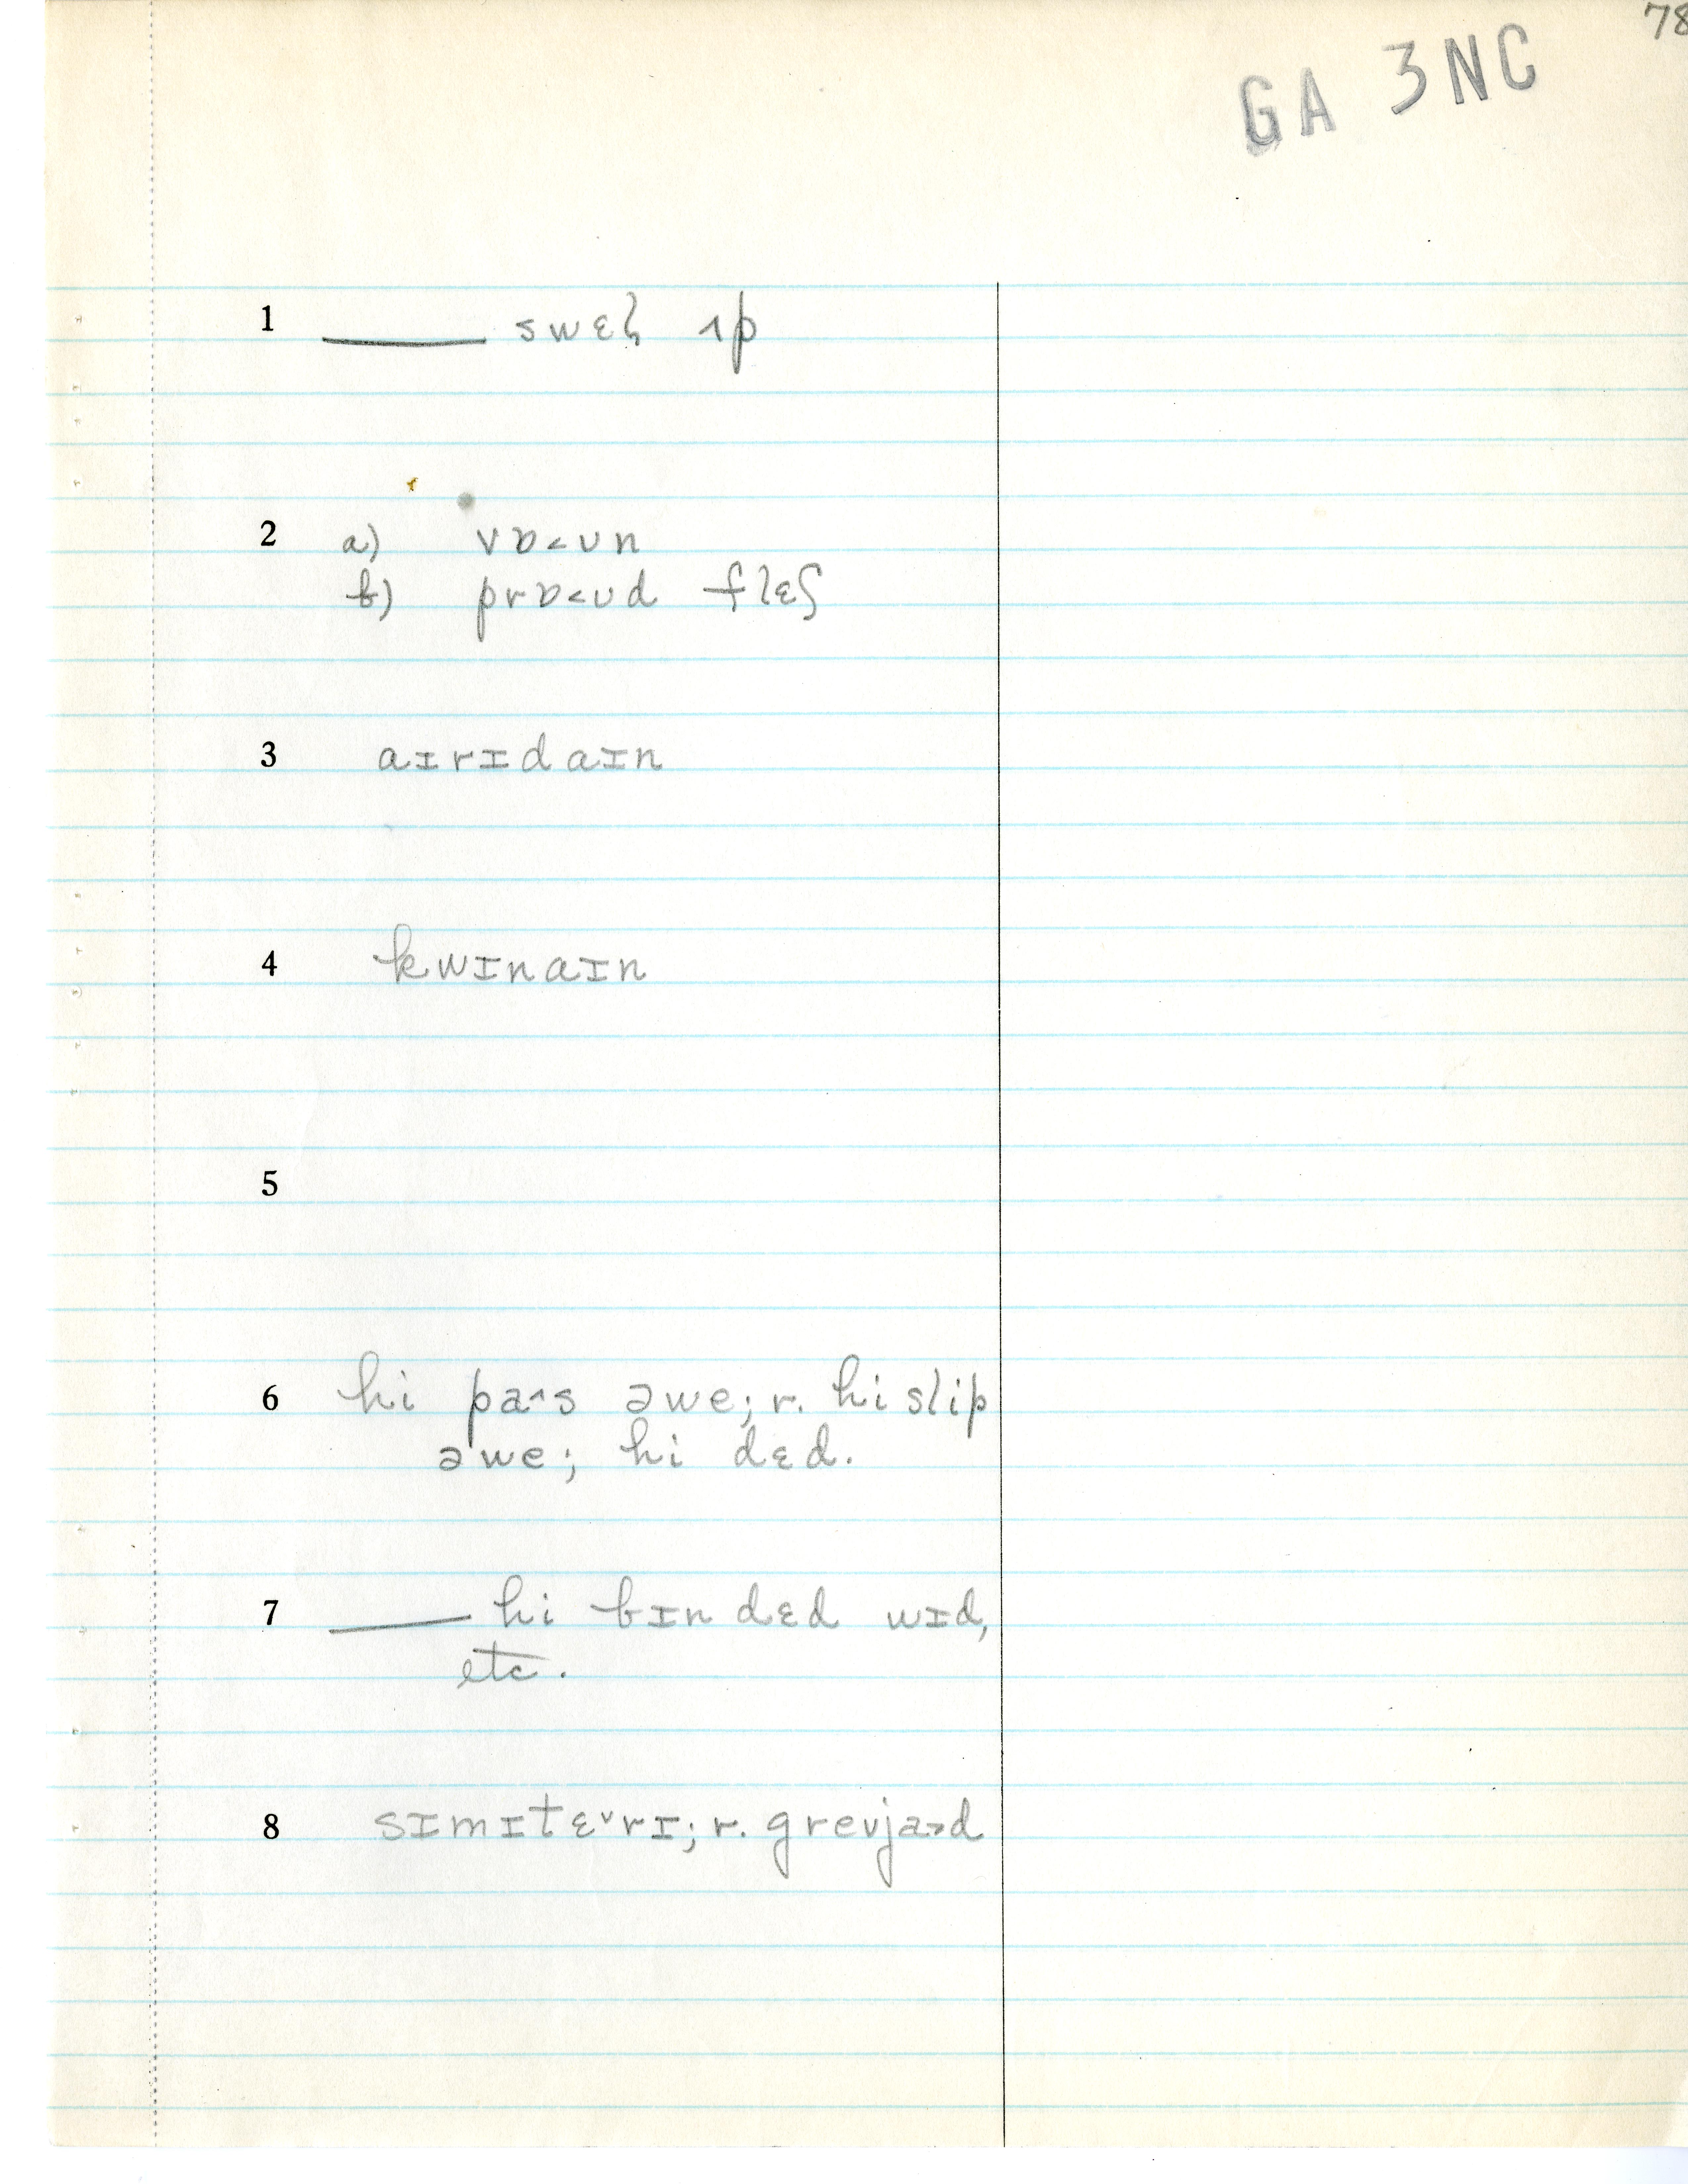 78
GA 3NC
1 ____ swɛɫ ʌp
2 a) vɒ˂ʊn
b) prɒ˂ʊd flɛʃ
3 aɪrɪdaɪn
4 kwɪnaɪn
5
6 hi pa˄s əwe; r. hi slip
əwe; hi dɛd.
7 ____ hi bɪn dɛd wɪd,
etc.
8 sɪmɪtɛ˅rɪ; r. grevja˃d